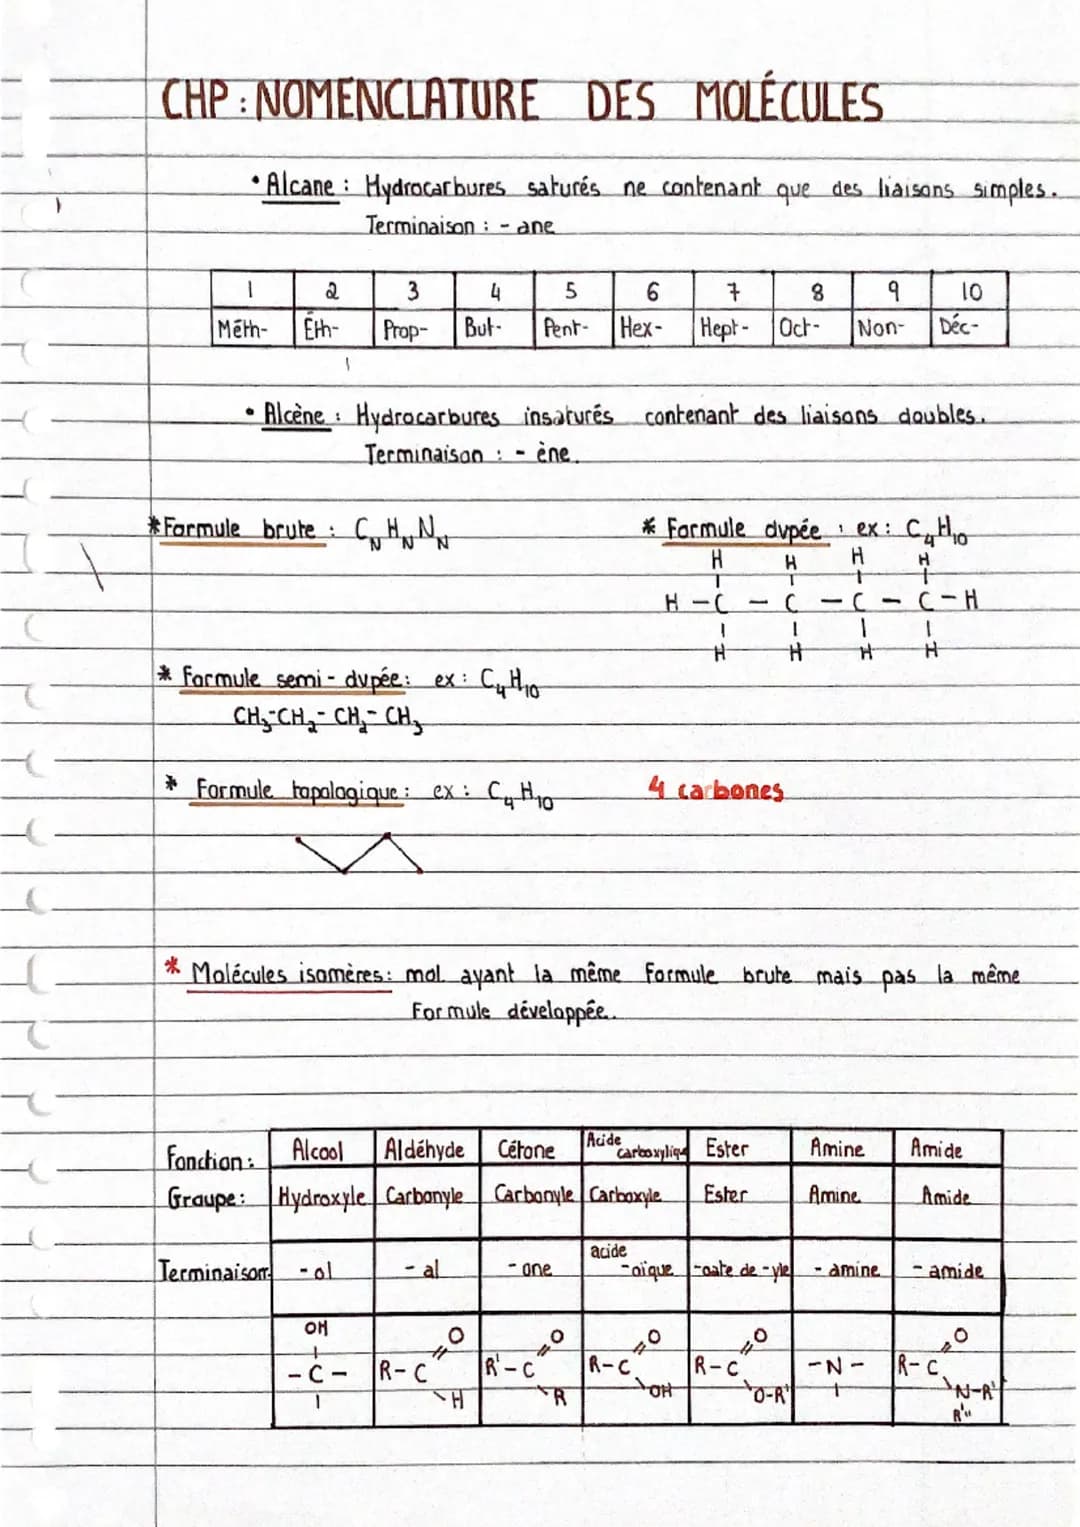 CHP : NOMENCLATURE DES MOLÉCULES
• Alcane : Hydrocarbures saturés ne contenant que des liaisons simples.
Terminaison : - ane
1 2 3 4 5 6 7 8 9 10
Méth- Éth- Prop- But- Pent- Hex- Hept- Oct- Non- Déc-
• Alcène : Hydrocarbures insaturés contenant des liaisons doubles.
Terminaison : - ène.
* Formule brute : C_N H_N N_N
* Formule dvpée : ex : C₄H₁₀
H H H H
H - C - C - C - C - H
H H H H
* Formule semi-dvpée : ex : C₄H₁₀
CH₃-CH₂-CH₂-CH₃
* Formule topologique : ex : C₄H₁₀ 4 carbones
* Molécules isomères : mol. ayant la même formule brute mais pas la même
Formule développée.
Fonction : Alcool Aldéhyde Cétone Acide carboxylique Ester Amine Amide
Groupe : Hydroxyle Carbonyle Carbonyle Carboxyle Ester Amine Amide
Terminaison - ol - al - one acide -oïque -oate de -yle - amine - amide
OH O O O O O
- C - R - C R' - C R - C R - C - N - R - C
H R OH O-R' N-R'
R''